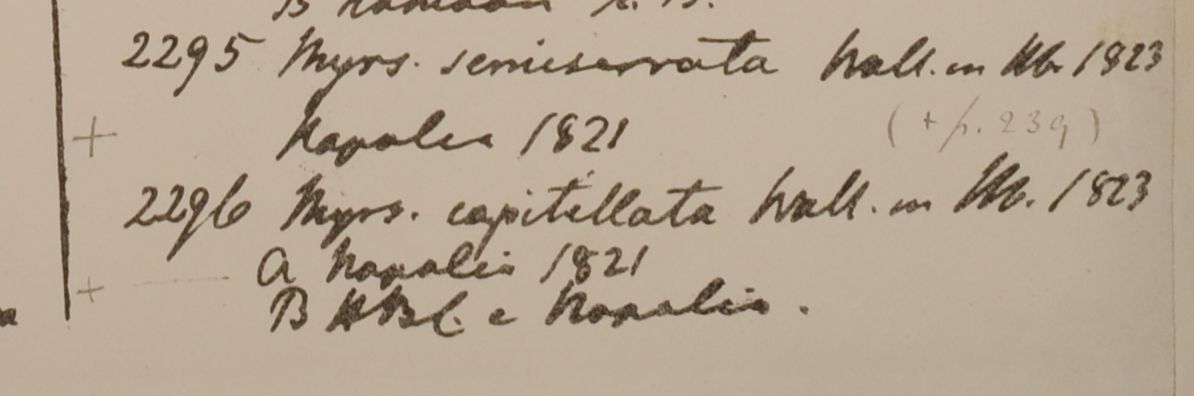 2295 Myrs. semiserrata Wall. in Hb. 1823
+ Napalia 1821 (+ p. 239)
2296 Myrs. capitellata Wall. in Hb. 1823
a Napalia 1821
+ B HBC. e Napalia.